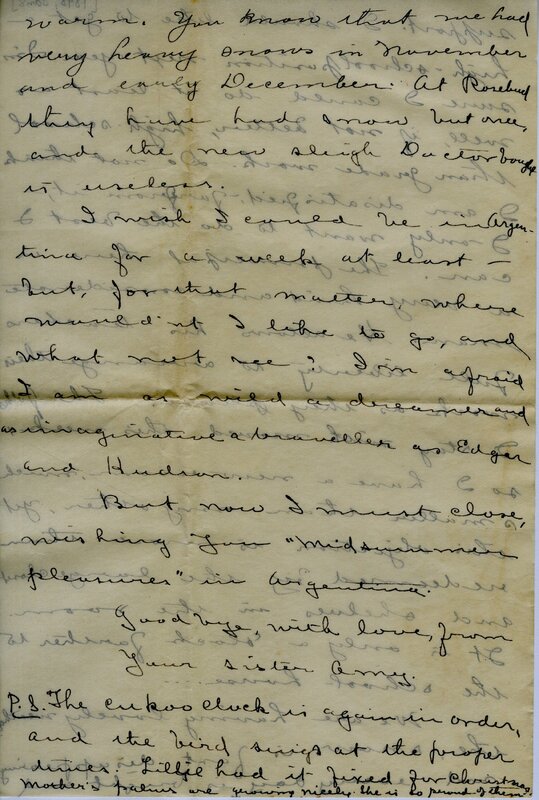 warm. You know that we had
very heavy snows in November
and early December. At Rosebud
they have had snow but once,
and the new sleigh Doctor bought
is useless.
I wish I could be in Argen-
tina for a week at least —
but, for that matter, where
would n't I like to go, and
what not see? I'm afraid
I am as wild a dreamer and
as imaginative a traveller as Edgar
and Hudson.
But now I must close,
wishing you "midsummer
pleasures" in Argentina.
Goodbye, with love, from
Your sister Amy.
P.S. The cukoo clock is again in order,
and the bird sings at the proper
times. Lillie had it fixed for Christmas.
Mother's palms are growing nicely. She is so proud of them.